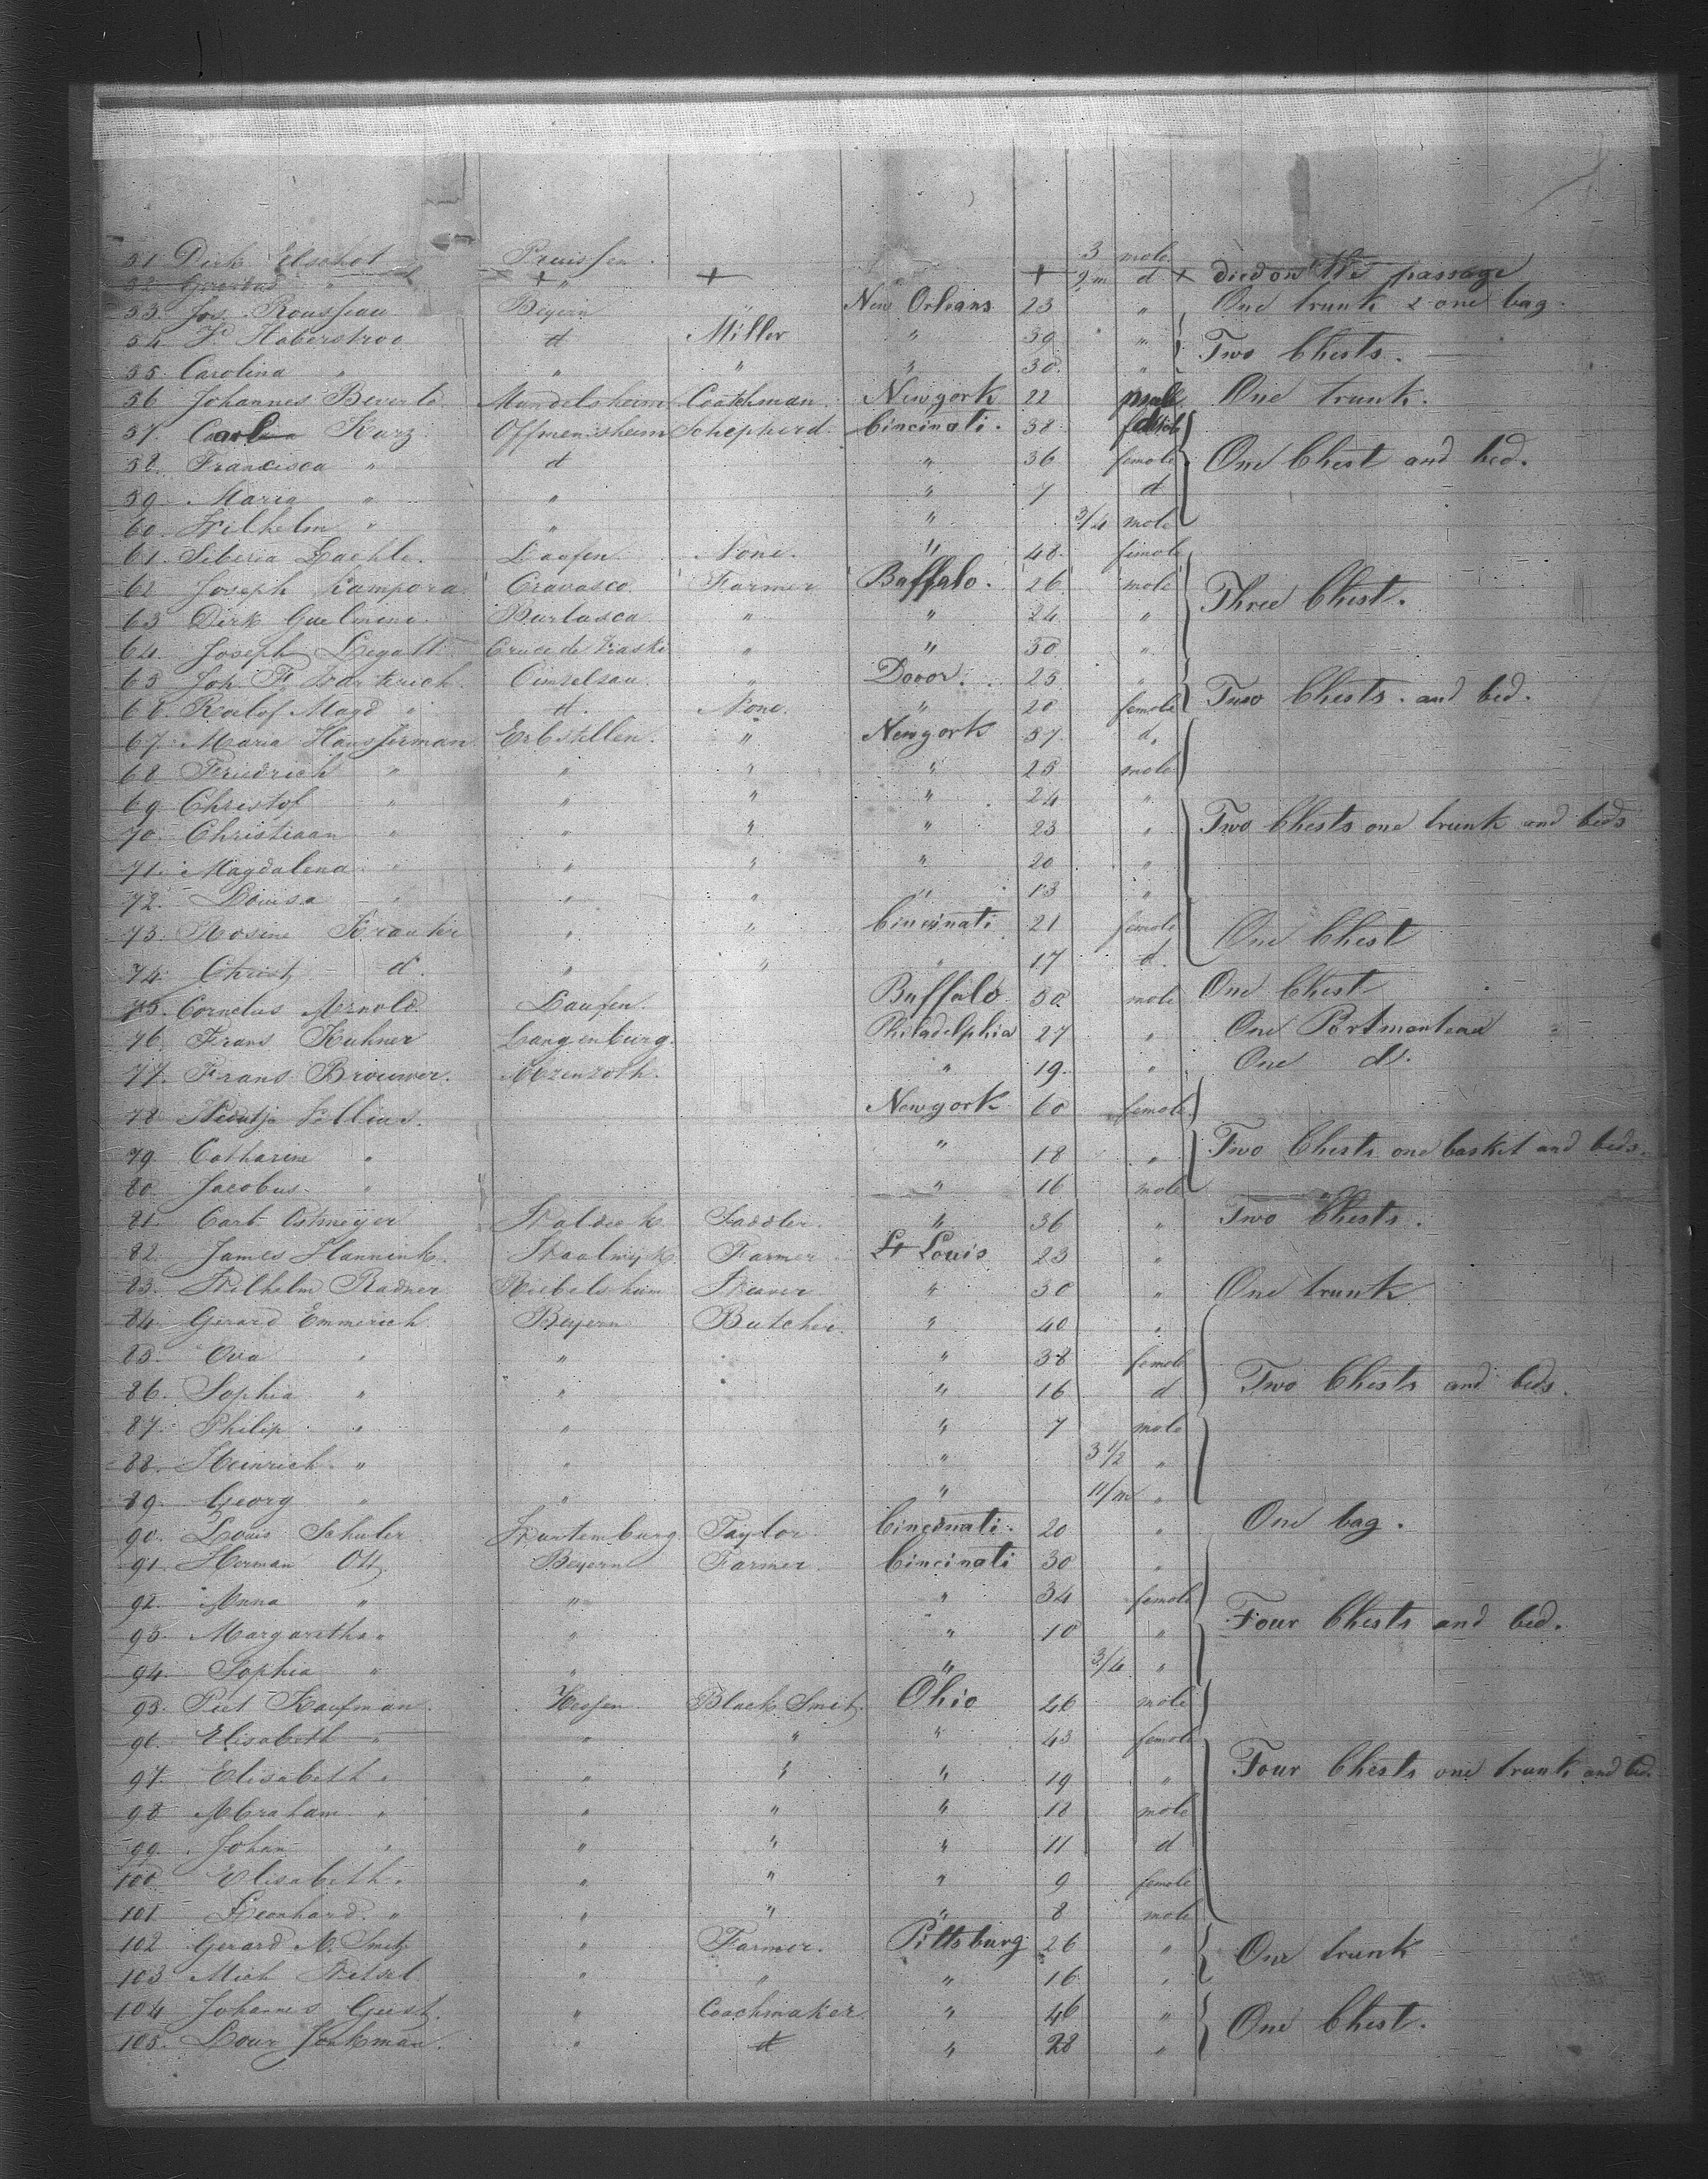 51 Dirk Elschot Pruissen 3 male
52 " + " + " + 9/m d + died on the passage
53. Jos. Rousseau Beyern " New Orleans 23 " One trunk & one bag.
54 F. Haberstroo d Miller " 39 " Two Chests.
55 Carolina " " " " 30. "
56 Johannes Beverle Mundelsheim Coatchman Newyork 22 male One trunk.
57. Carl Kurz Offmenisheim Schepherd. Cincinati. 38
58. Francisca " d " 36 female One Chest and bed.
59 Maria " " " 7 d
60. Wilhelm " " " 3/4 male
61. Siberia Lachle. Laufen None. " 48. female
62 Joseph Kampora Cravasco Farmer Buffalo. 26 male Three Chest.
63 Dirk Guelmino. Burlasca " " 24 "
64. Joseph Legatt " " 30 "
65 Joh. F. " Dover. 25 "
66. Magd " d. None. " 20 female Two Chests. and bed.
67. Maria Hansserman Erbstellen. " Newyork 57 d.
68 Friedrich " " " " 25 male
69 Christof " " " " 24 "
70. Christiaan " " " " 23 " Two Chests one trunk and beds
71. Magdalena " " " " 20 "
72. Louisa " " " " 13 "
73. Rosine Krauter " " Cincinati 21 female One Chest
74. Christ d. " " " 17 d.
75. Cornelus Arnold Laufen. Buffalo 30. male One Chest
76. Frans Kuhner Langenburg. Philadelphia 27 " One Portmanteau
77. Frans Brouwer. " 19. " One d.
78. Newyork 60 female
79. Catharine " " 18 " Two Chests one basket and beds.
80. Jacobus " " 16 male
81. Carl Ostmeyer Waldeck Saddler. " 36 " Two Chests.
82. James Hannink. Waalwyk Farmer St Louis 23 "
83. Wilhelm Radner Weaver " 30 " One trunk
84. Girard Emmerich Beyern Butcher. " 40 "
85. Ova " " " 38 female
86. Sophia " " " 16 d Two Chests and beds.
87. Philip " " " 7 male
88. Heinrich " " " 3 1/2 "
89. Georg " " " 11/m "
90. Louis Schuler Wurtemburg Taylor Cincinati. 20 " One bag.
91. Herman Ott Beyern Farmer. Cincinati 30 "
92. Anna " " " 34 female
93. Margaretha " " " 10 " Four Chests and bed.
94. Sophia " " " 3/4 "
95. Piet Kaufman. Hessen Black Smit. Ohio 46 male
96. Elisabeth " " " " 43 female
97. Elisabeth " " " " 19 " Four Chests one trunk and bed.
98 Abraham " " " " 18 male
99. Johan " " " " 11 d
100 Elisabeth " " " " 9 female
101 Leonhard. " " " " 8 male
102 Gerard M. Smitz " Farmer. Pittsburg 26 " One trunk
103 Mich Wetzel " " " 16 "
104 Johannes Geist. " Coachmaker " 46 " One Chest.
105. " d " 28 "